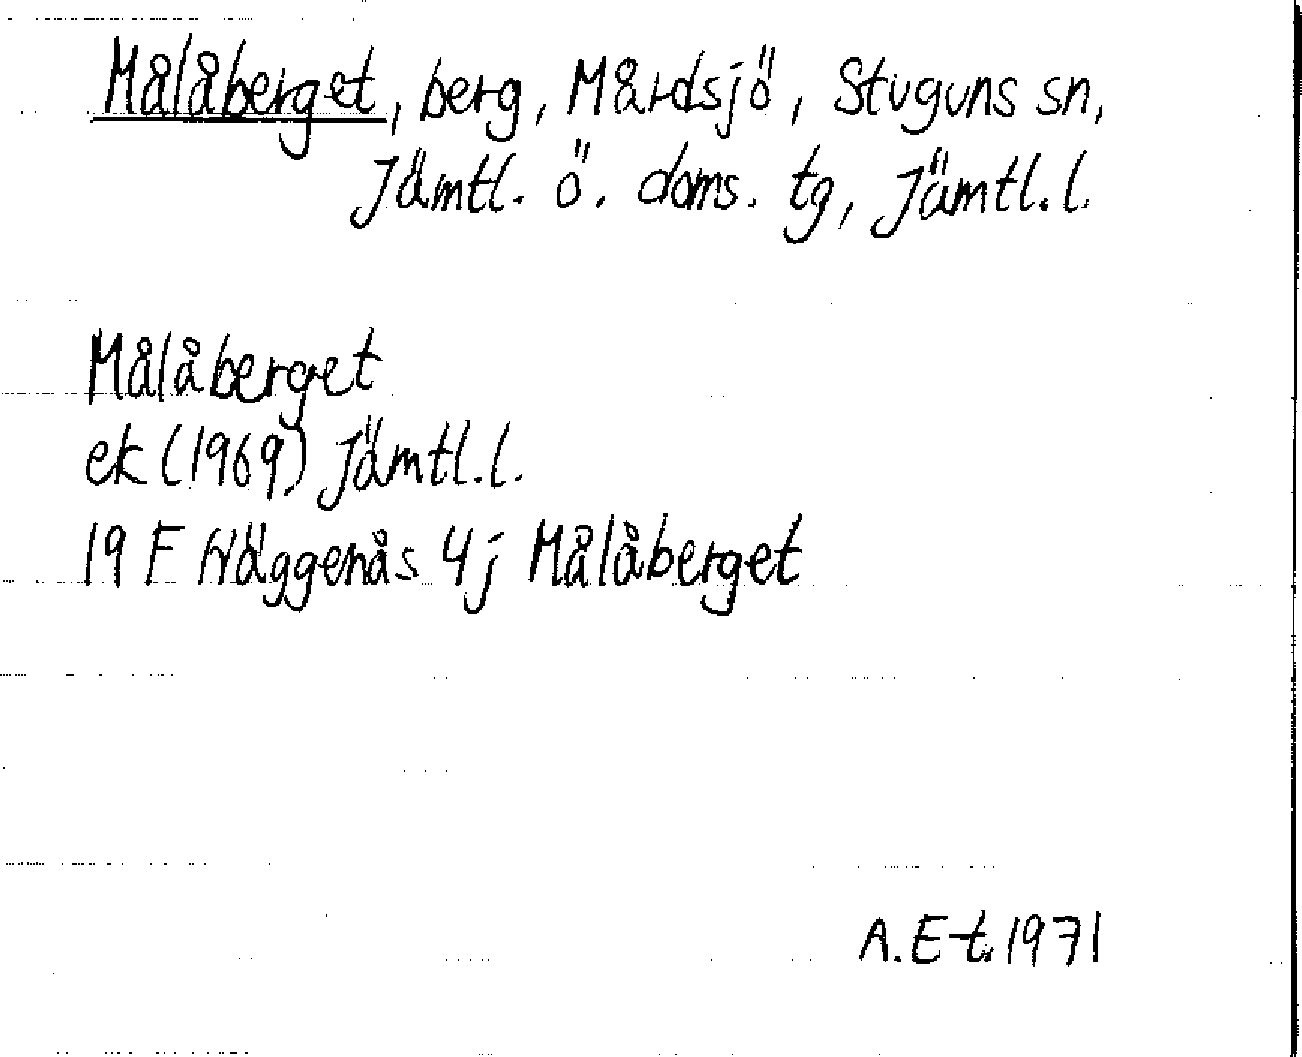 Målåberget, berg, Mårdsjö, Stuguns sn,
Jämtl. ö. doms. tg, Jämtl. l.
Målåberget
ek (1969) Jämtl. l.
19 F Häggenås 4j Målåberget
A. E-t. 1971